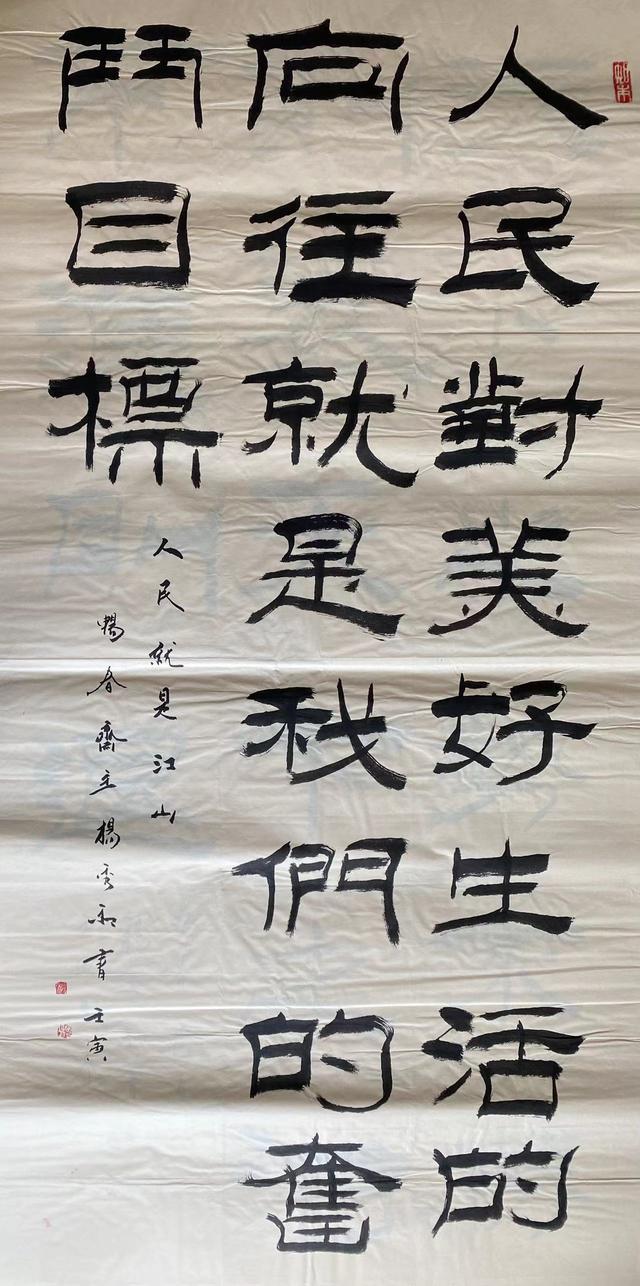 人民對美好生活的
向往就是我們的奮
鬥目標
人民就是江山
春齋主楊書壬寅